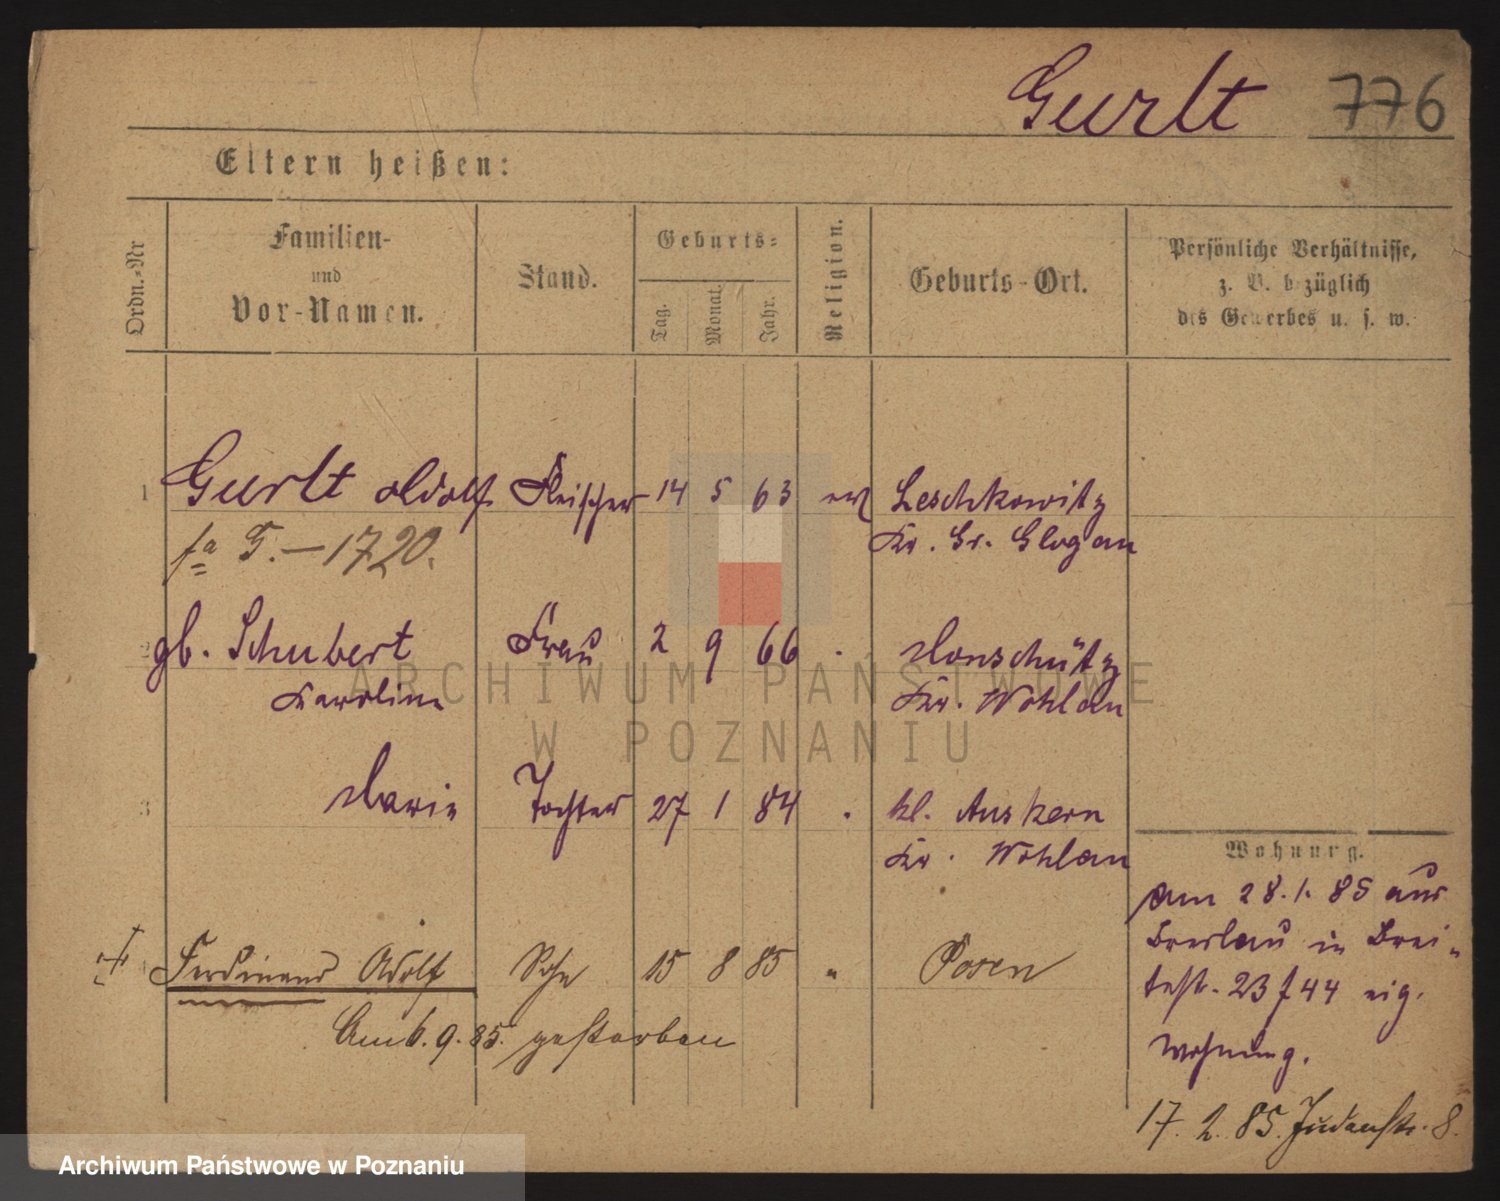 Gurlt 776
Eltern heißen:
Ordn.=Nr
Familien-
und
Vor-Namen.
Stand.
Geburts=
Tag.
Monat.
Jahr.
Religion.
Geburts-Ort.
Persönliche Verhältnisse,
z. B. bezüglich
des Gewerbes u. s. w.
1 Gurlt Adolf Fleischer 14 5 63 ev Leschkowitz
Kr. Gr. Glogau
fa G. – 1720.
2 gb. Schubert Frau 2 9 66 . Monschütz
Karoline Kr. Wohlau
3 Marie Tochter 27 1 84 . kl. Auskern
Kr. Wohlau
Ferdinand Adolf Sohn 15 8 85 " Posen
Am 6. 9. 85. gestorben
Wohnung.
Am 28. 1. 85 aus
Breslau in Brei-
testr. 23 f 44 eig.
Wohnung.
17. 2. 85. Judenstr. 8.
ARCHIWUM PAŃSTWOWE
W POZNANIU
Archiwum Państwowe w Poznaniu